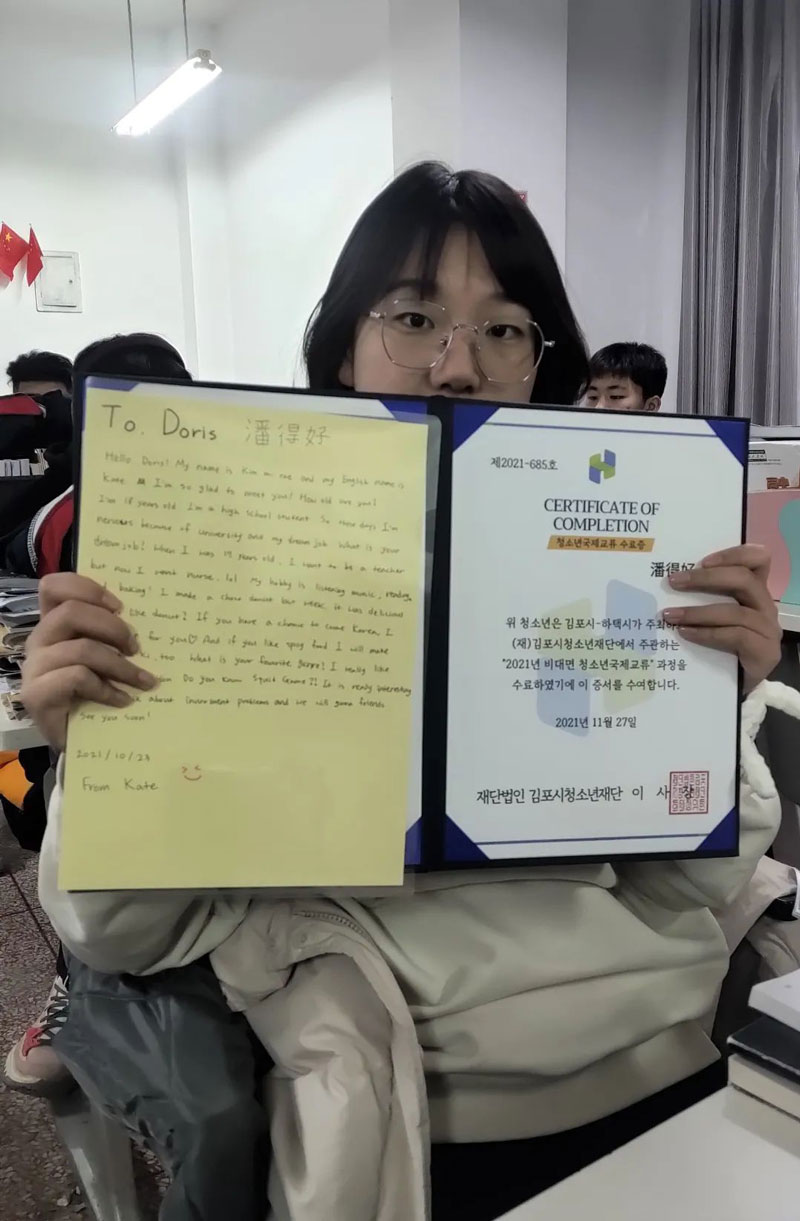 To. Doris 潘得好
Hello Doris! My name is Kim and my English name is
Kate I'm so glad to meet you! How old are you?
I'm 18 years old. I'm a high school student. So these days I'm
nervous because of university and my dream job. What is your
dream job? When I was 17 years old, I want to be a teacher
but now I want nurse. lol My hobby is listening music, reading
baking! I made a choco donut last week. It was delicious
like donut? If you have a chance to come Korea, I
for you♡ And if you like spicy food I will make
too. What is your favorite I really like
Do you know Squid Game?! It is really interesting
about environment problems and we will good friends
See you soon!
2021/10/23
From Kate
제2021-685호
CERTIFICATE OF
COMPLETION
청소년국제교류 수료증
潘得好
위 청소년은 김포시-하택시가 주최하
(재)김포시청소년재단에서 주관하는
"2021년 비대면 청소년국제교류" 과정을
수료하였기에 이 증서를 수여합니다.
2021년 11월 27일
재단법인 김포시청소년재단 이 사 장